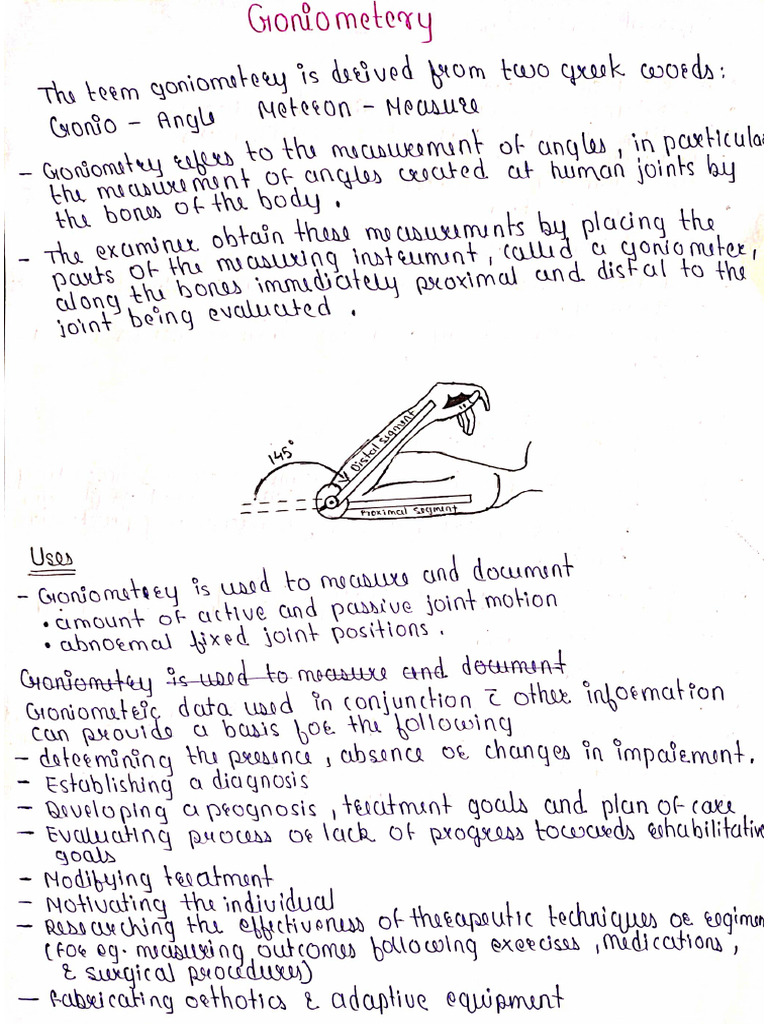 Goniometery
The term goniometery is derived from two greek words:
Gonio - Angle Meteron - Measure
- Goniometry refers to the measurement of angles, in particular
the measurement of angles created at human joints by
the bones of the body.
- The examiner obtain these measurements by placing the
parts of the measuring instrument, called a goniometer,
along the bones immediately proximal and distal to the
joint being evaluated.
145°
Distal segment
Proximal segment
Uses
- Goniometery is used to measure and document
• amount of active and passive joint motion
• abnormal fixed joint positions.
Goniometry is used to measure and document
Goniometric data used in conjunction c̄ other information
can provide a basis for the following
- determining the presence, absence or changes in impairment.
- Establishing a diagnosis
- Developing a prognosis, treatment goals and plan of care
- Evaluating process or lack of progress towards rehabilitative
goals
- Modifying treatment
- Motivating the individual
- Researching the effectiveness of therapeutic techniques or regimen
(for eg. measuring outcomes following exercises, medications,
& surgical procedures)
- fabricating orthotics & adaptive equipment